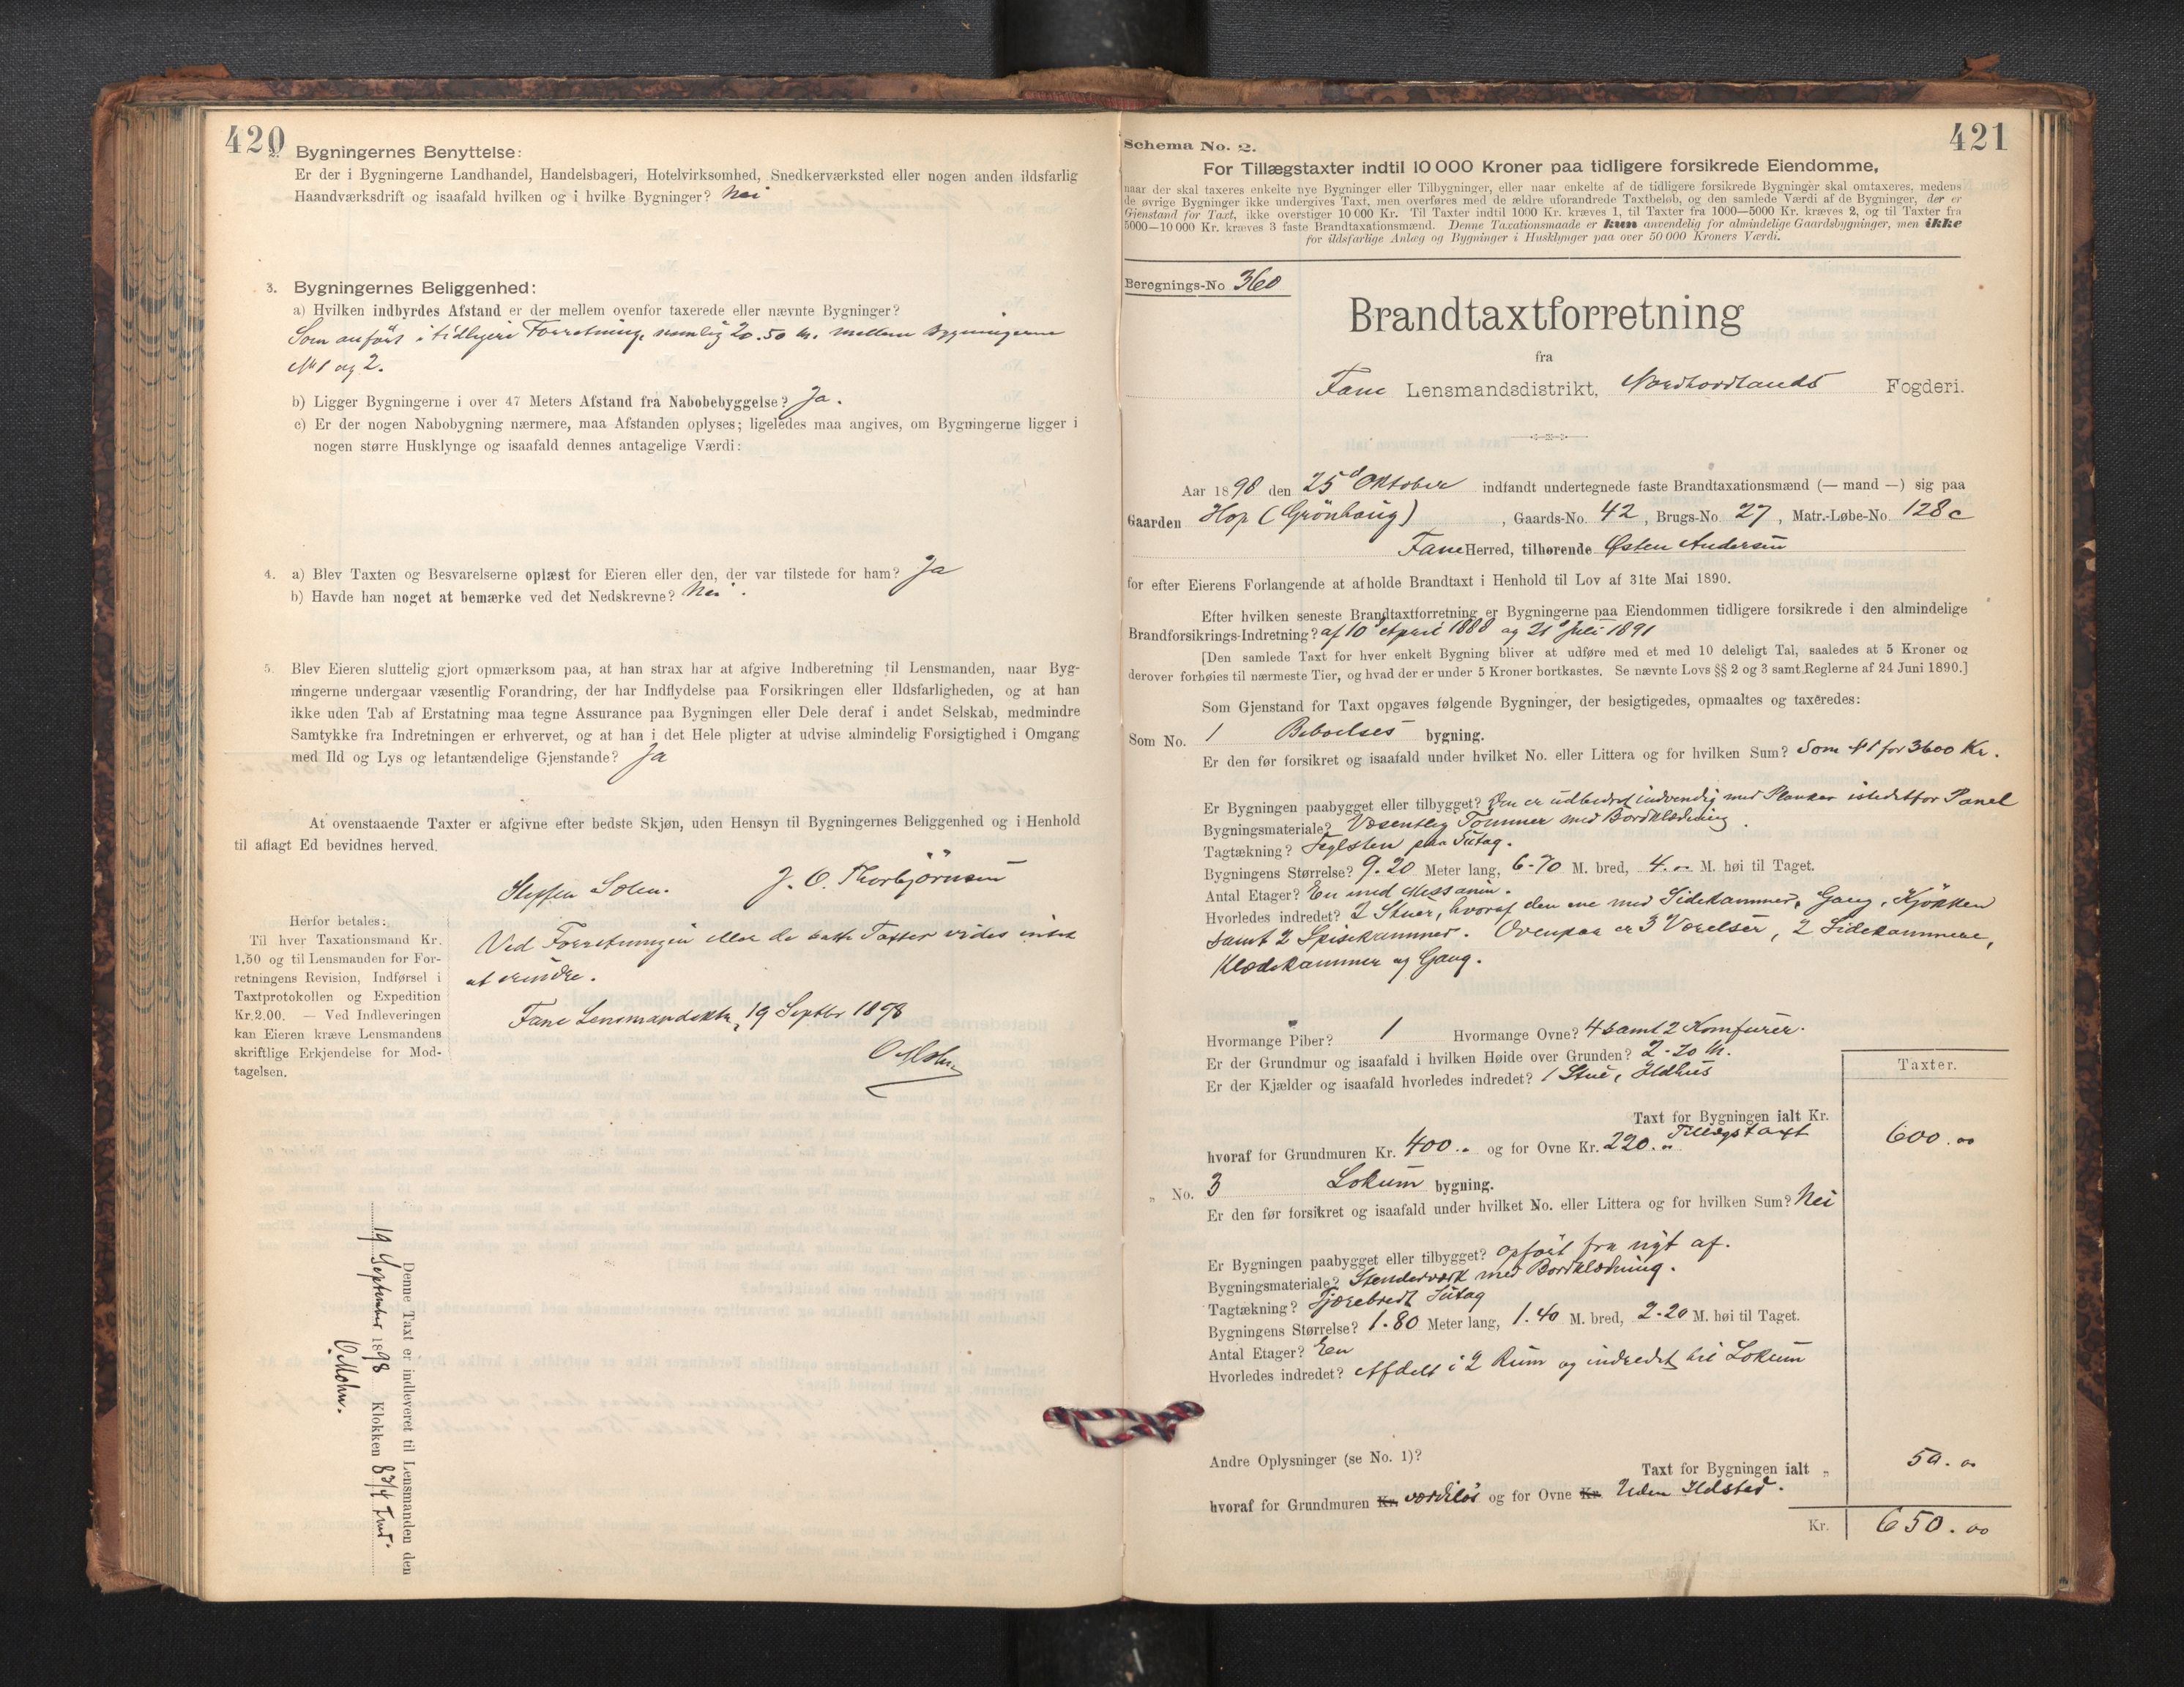 420
2. Bygningernes Benyttelse:
Er der i Bygningerne Landhandel, Handelsbageri, Hotelvirksomhed, Snedkerværksted eller nogen anden ildsfarlig
Haandværksdrift og isaafald hvilken og i hvilke Bygninger? Nei
3. Bygningernes Beliggenhed:
a) Hvilken indbyrdes Afstand er der mellem ovenfor taxerede eller nævnte Bygninger?
Som anført i tidligere Forretning, nemlig 20.50 m. mellem Bygningerne
No 1 og 2.
b) Ligger Bygningerne i over 47 Meters Afstand fra Nabobebyggelse? Ja.
c) Er der nogen Nabobygning nærmere, maa Afstanden oplyses; ligeledes maa angives, om Bygningerne ligger i
nogen større Husklynge og isaafald dennes antagelige Værdi:
4. a) Blev Taxten og Besvarelserne oplæst for Eieren eller den, der var tilstede for ham? Ja
b) Havde han noget at bemærke ved det Nedskrevne? Nei.
5. Blev Eieren sluttelig gjort opmærksom paa, at han strax har at afgive Indberetning til Lensmanden, naar Byg-
ningerne undergaar væsentlig Forandring, der har Indflydelse paa Forsikringen eller Ildsfarligheden, og at han
ikke uden Tab af Erstatning maa tegne Assurance paa Bygningen eller Dele deraf i andet Selskab, medmindre
Samtykke fra Indretningen er erhvervet, og at han i det Hele pligter at udvise almindelig Forsigtighed i Omgang
med Ild og Lys og letantændelige Gjenstande? Ja
At ovenstaaende Taxter er afgivne efter bedste Skjøn, uden Hensyn til Bygningernes Beliggenhed og i Henhold
til aflagt Ed bevidnes herved.
Steffen Solem. J. O. Thorbjörnsen
Herfor betales:
Til hver Taxationsmand Kr.
1,50 og til Lensmanden for For-
retningens Revision, Indførsel i
Taxtprotokollen og Expedition
Kr. 2.00. — Ved Indleveringen
kan Eieren kræve Lensmandens
skriftlige Erkjendelse for Mod-
tagelsen.
Ved Forretningen eller de satte Taxter vides intet
at erindre.
Fane Lensmandsktr, 19 Septbr 1898
O Mohn
Denne Taxt er indleveret til Lensmanden den
19 September 1898 Klokken 8 3/4 Fmd.
O. Mohn.
421
Schema No. 2.
For Tillægstaxter indtil 10 000 Kroner paa tidligere forsikrede Eiendomme,
naar der skal taxeres enkelte nye Bygninger eller Tilbygninger, eller naar enkelte af de tidligere forsikrede Bygninger skal omtaxeres, medens
de øvrige Bygninger ikke undergives Taxt, men overføres med de ældre uforandrede Taxtbeløb, og den samlede Værdi af de Bygninger, der er
Gjenstand for Taxt, ikke overstiger 10 000 Kr. Til Taxter indtil 1000 Kr. kræves 1, til Taxter fra 1000—5000 Kr. kræves 2, og til Taxter fra
5000—10 000 Kr. kræves 3 faste Brandtaxationsmænd. Denne Taxationsmaade er kun anvendelig for almindelige Gaardsbygninger, men ikke
for ildsfarlige Anlæg og Bygninger i Husklynger paa over 50 000 Kroners Værdi.
Beregnings-No 360
Brandtaxtforretning
fra
Fane Lensmandsdistrikt, Nordhordlands Fogderi.
Aar 1898 den 25d Oktober indfandt undertegnede faste Brandtaxationsmænd (— mand —) sig paa
Gaarden Hop (Grönhaug), Gaards-No. 42, Brugs-No. 27, Matr.-Løbe-No. 128c
Fane Herred, tilhørende Østen Andersen
for efter Eierens Forlangende at afholde Brandtaxt i Henhold til Lov af 31te Mai 1890.
Efter hvilken seneste Brandtaxtforretning er Bygningerne paa Eiendommen tidligere forsikrede i den almindelige
Brandforsikrings-Indretning? af 10d April 1888 og 21d Juli 1891
[Den samlede Taxt for hver enkelt Bygning bliver at udføre med et med 10 deleligt Tal, saaledes at 5 Kroner og
derover forhøies til nærmeste Tier, og hvad der er under 5 Kroner bortkastes. Se nævnte Lovs §§ 2 og 3 samt Reglerne af 24 Juni 1890.]
Som Gjenstand for Taxt opgaves følgende Bygninger, der besigtigedes, opmaaltes og taxeredes:
Som No. 1 Beboelses bygning.
Er den før forsikret og isaafald under hvilket No. eller Littera og for hvilken Sum? Som No 1 for 3600 Kr.
Er Bygningen paabygget eller tilbygget? Den er udbedret indvendig med Planker istedetfor Panel
Bygningsmateriale? Væsentlig Tømmer med Bordklædning.
Tagtækning? Teglsten paa Sutag.
Bygningens Størrelse? 9.20 Meter lang, 6-70 M. bred, 4.- M. høi til Taget.
Antal Etager? En med Messanin.
Hvorledes indredet? 2 Stuer, hvoraf den ene med Sidekammer, Gang, Kjøkken
samt 2 Spisekammer. Ovenpaa er 3 Værelser, 2 Sidekammere,
Klædekammer og Gang.
Hvormange Piber? 1 Hvormange Ovne? 4 samt 2 Komfurer.
Er der Grundmur og isaafald i hvilken Høide over Grunden? 2-20 M.
Er der Kjælder og isaafald hvorledes indredet? 1 Stue, Ildhus
Taxter.
Taxt for Bygningen ialt Kr.
Tillægstaxt 600.00
hvoraf for Grundmuren Kr. 400.- og for Ovne Kr. 220.-
„ No. 3 Lokum bygning.
Er den før forsikret og isaafald under hvilket No. eller Littera og for hvilken Sum? Nei
Er Bygningen paabygget eller tilbygget? opført fra nyt af.
Bygningsmateriale? Stenderværk med Bordklædning.
Tagtækning? Tjærebredt Sutag
Bygningens Størrelse? 1.80 Meter lang, 1.40 M. bred, 2-20 M. høi til Taget.
Antal Etager? En
Hvorledes indredet? Afdelt i 2 Rum og indredet til Lokum
Andre Oplysninger (se No. 1)?
Taxt for Bygningen ialt „ 50.00
hvoraf for Grundmuren Kr. værdiløs og for Ovne Kr. Uden Ildsted.
Kr. 650.00